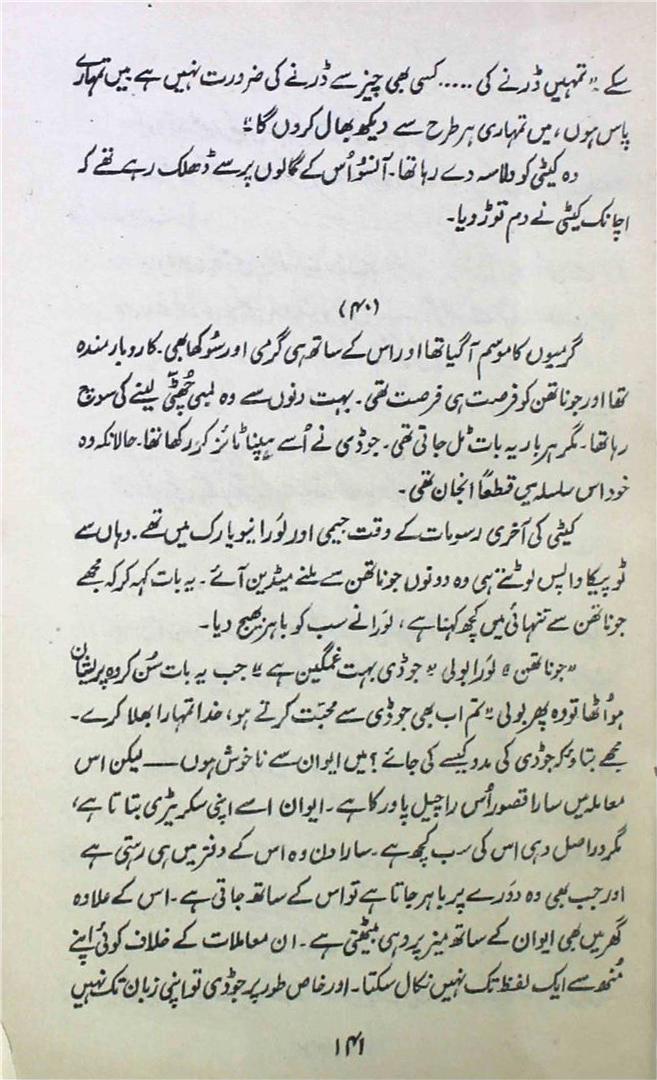 کے ـ" تمہیں ڈرنے کی ..... کسی بھی چیز سے ڈرنے کی ضرورت نہیں ہے میں تمہارے
پاس ہوں، میں تمہاری ہر طرح سے دیکھ بھال کروں گا ـ"
وہ کیٹی کو دلاسہ دے رہا تھا۔ آنسو اُس کے گالوں پر سے ڈھلک رہے تھے کہ
اچانک کیٹی نے دم توڑ دیا۔
(۴۰)
گرمیوں کا موسم آ گیا تھا اور اس کے ساتھ ہی گرمی اور سُوکھا بھی۔ کاروبار مندہ
تھا اور جوناتھن کو فرصت ہی فرصت تھی۔ بہت دنوں سے وہ لمبی چھُٹّی لینے کی سوچ
رہا تھا۔ مگر ہر بار یہ بات ٹل جاتی تھی۔ جوڈی نے اُسے ہپناٹائز کر رکھا تھا۔ حالانکہ وہ
خود اس سلسلہ میں قطعاً انجان تھی۔
کیٹی کی آخری رسومات کے وقت جیمی اور لَورا نیویارک میں تھے۔ وہاں سے
ٹوپیکا واپس لوٹتے ہی وہ دونوں جوناتھن سے ملنے میڈرین آئے۔ یہ بات کہہ کر کہ مجھے
جوناتھن سے تنہائی میں کچھ کہنا ہے، لَورا نے سب کو باہر بھیج دیا۔
"جوناتھن" لَورا بولی "جوڈی بہت غمگین ہے" جب یہ بات سُن کر وہ پریشان
ہو اُٹھا تو وہ پھر بولی "تم اب بھی جوڈی سے محبّت کرتے ہو، خدا تمہارا بھلا کرے۔
مجھے بتاؤ کہ جوڈی کی مدد کیسے کی جائے؟ میں ایوان سے ناخوش ہوں — لیکن اس
معاملہ میں سارا قصور اُس راچیل پاور کا ہے۔ ایوان اسے اپنی سکریٹری بتاتا ہے،
مگر دراصل وہی اس کی سب کچھ ہے۔ سارا دن وہ اس کے دفتر میں ہی رہتی ہے
اور جب بھی وہ دَورے پر باہر جاتا ہے تو اس کے ساتھ جاتی ہے۔ اس کے علاوہ
گھر میں بھی ایوان کے ساتھ میز پر وہی بیٹھتی ہے۔ ان معاملات کے خلاف کوئی اپنے
مُنھ سے ایک لفظ تک نہیں نکال سکتا۔ اور خاص طور پر جوڈی تو اپنی زبان تک نہیں
۱۴۱